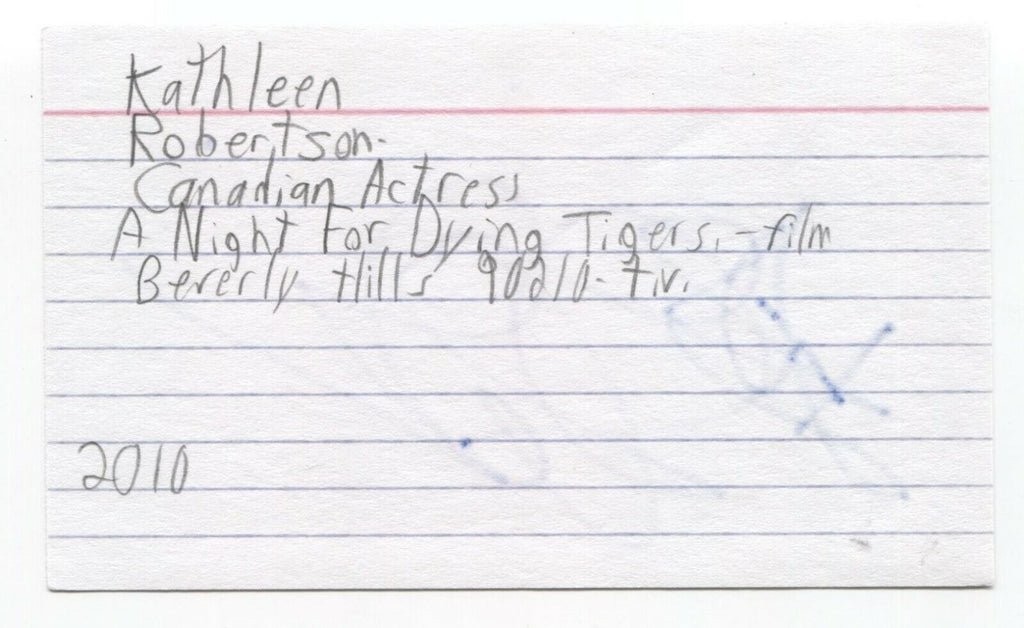 Kathleen
Robertson-
Canadian Actress
A Night For Dying Tigers.-film
Beverly Hills 90210- t.v.
2010